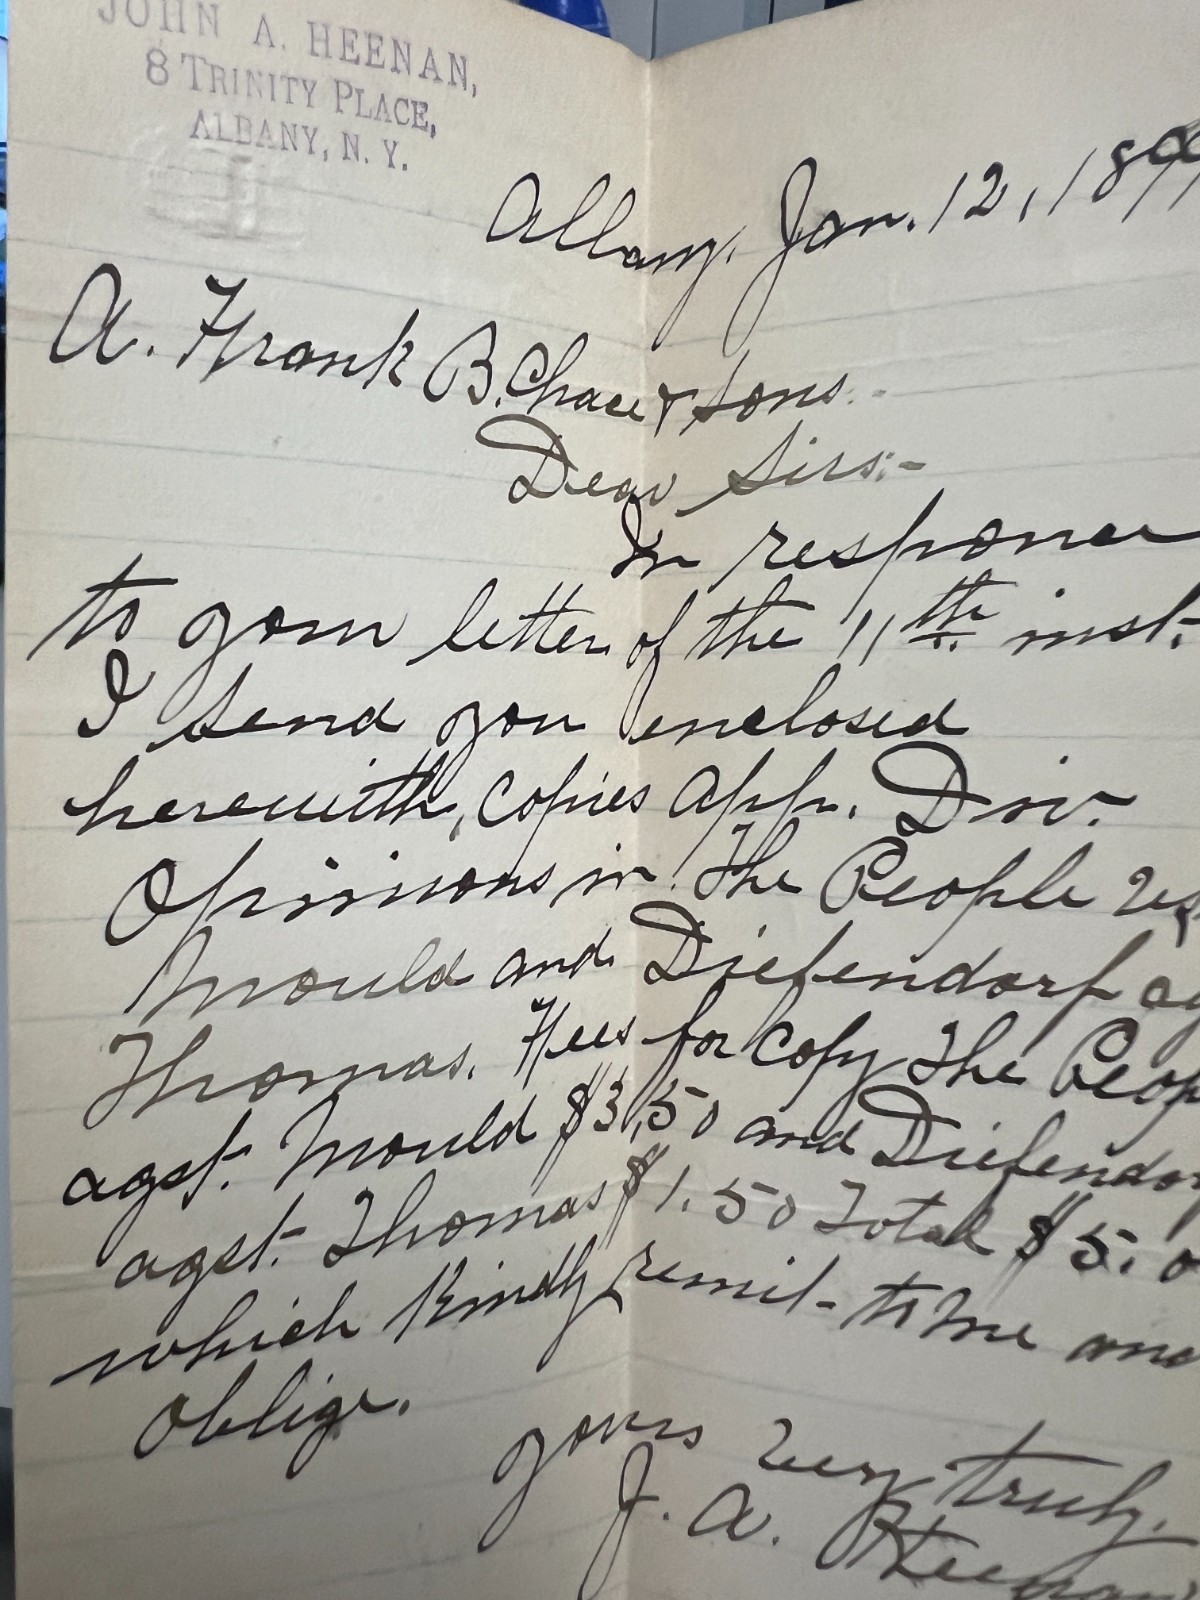 JOHN A. HEENAN,
8 TRINITY PLACE,
ALBANY, N. Y.
Albany, Jan. 12, 1899
A. Frank B. Chace & Sons.-
Dear Sirs:-
In response
to your letter of the 11th. inst.
I send you enclosed
herewith, copies App. Div.
Opinions in The People
Mould and Diefendorf ag
Thomas. Fees for copy The Peop
agst. Mould $3.50 and Diefendor
agst. Thomas $1.50 Total $5.0
which kindly remit- to me and
oblige.
yours very truly.
J. A. Heenan